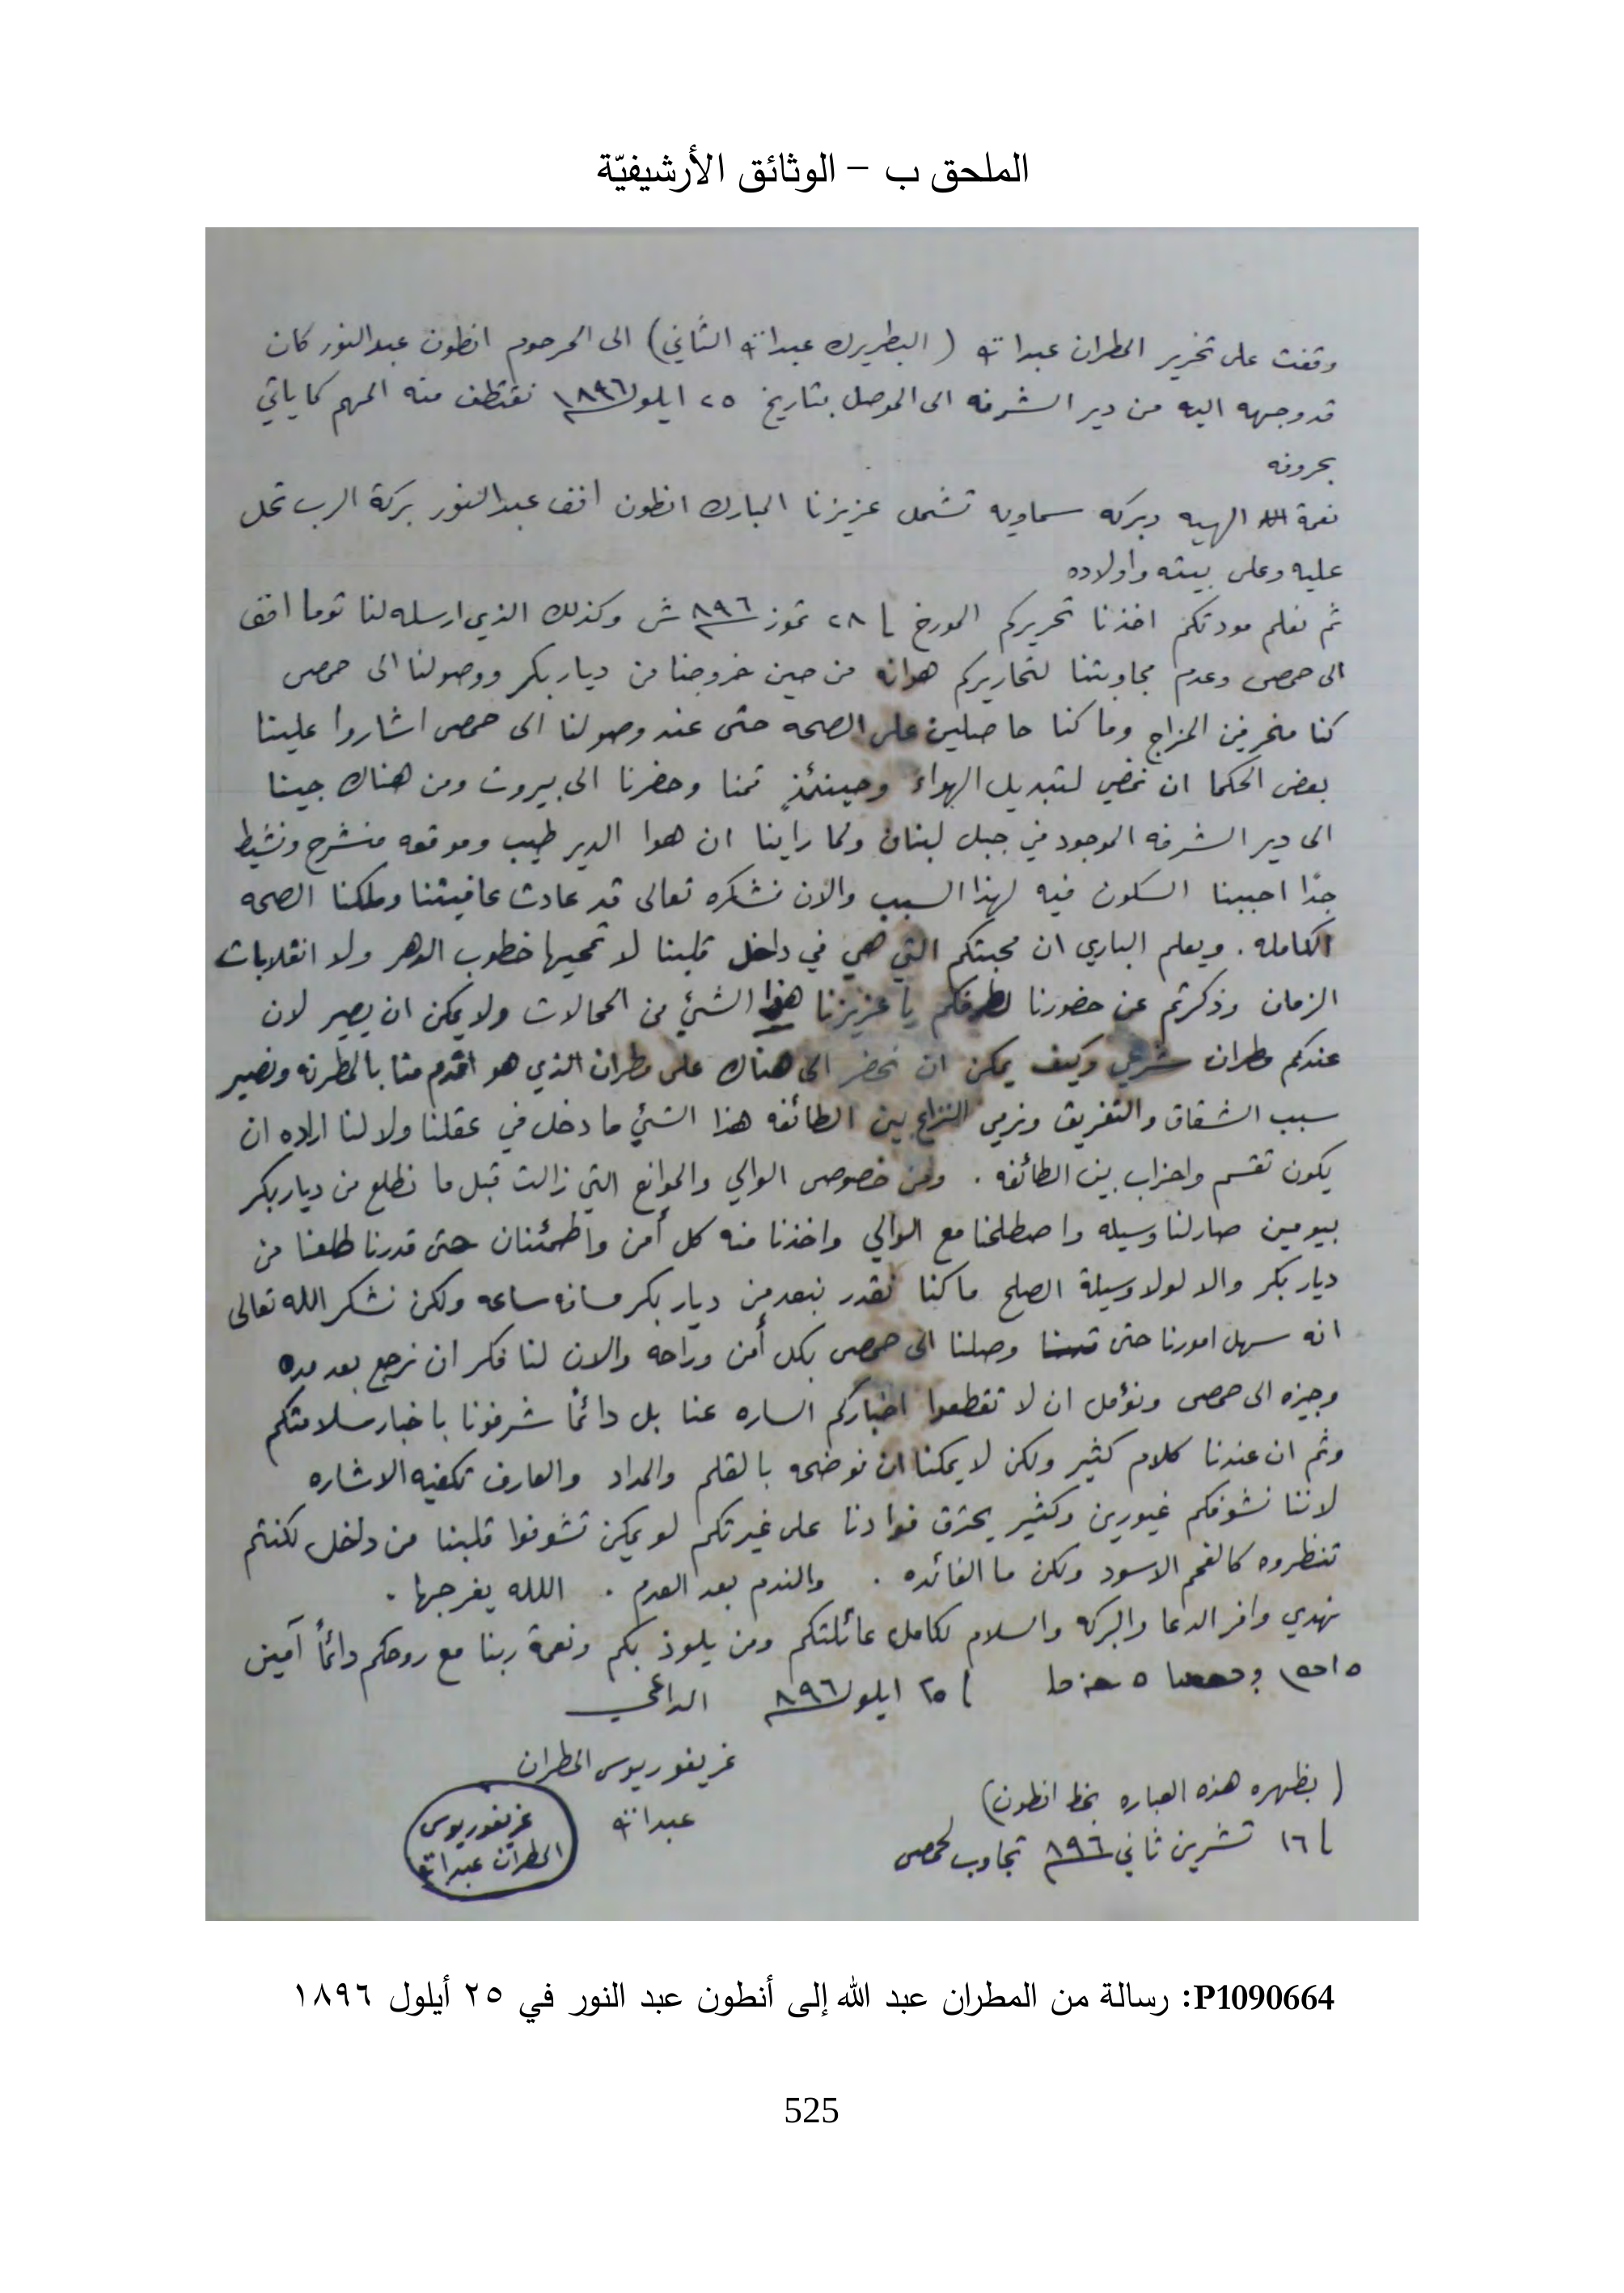 الملحق ب – الوثائق الأرشيفيّة
وقفت على تحرير المطران عبدالله (البطريرك عبدالله الثاني) الى المرحوم انطون عبدالنور كان
قد وجهه اليه من دير الشرفه الى الموصل بتاريخ ٢٥ ايلول ١٨٩٦ نقتطف منه المهم كما ياتي
بحروفه
نعمة الهيه وبركه سماويه تشمل عزيزنا المبارك انطون افف عبدالنور بركة الرب تحل
عليه وعلى بيته واولاده
ثم نعلم مودتكم اخذنا تحريركم المورخ ٢٨ تموز ٨٩٦ ش وكذلك الذي ارسله لنا توما افف
الى حمص وعدم مجاوبتنا لتحاريركم هوانه من حين خروجنا من ديار بكر ووصولنا الى حمص
كنا منحرفين المزاج وما كنا حاصلين على الصحه حتى عند وصولنا الى حمص اشاروا علينا
بعض الحكما ان نمضي لتبديل الهواء وحينئذٍ قمنا وحضرنا الى بيروت ومن هناك جينا
الى دير الشرفه الموجود في جبل لبنان ولما راينا ان هوا الدير طيب وموقعه منشرح ونشيط
جدًا احببنا السكون فيه لهذا السبب والان نشكره تعالى قد عادت عافيتنا وملكنا الصحه
الكامله . ويعلم الباري ان محبتكم التي هي في داخل قلبنا لا تمحيها خطوب الدهر ولا انقلابات
الزمان وذكرتم عن حضورنا لطرفكم يا عزيزنا هذا الشئ من المحالات ولا يمكن ان يصير لان
عندكم مطران شرعي وكيف يمكن ان نحضر الى هناك على مطران الذي هو اقدم منا بالمطرنه ونصير
سبب الشقاق والتفريق ونرمي النزاع بين الطائفه هذا الشئ ما دخل في عقلنا ولا لنا اراده ان
يكون تقسم واحزاب بين الطائفه . ومن خصوص الوالي والموانع التي زالت قبل ما نطلع من ديار بكر
بيومين صار لنا وسيله واصطلحنا مع الوالي واخذنا منه كل أمن واطمئنان حتى قدرنا طلعنا من
ديار بكر والا لولا وسيلة الصلح ما كنا نقدر نبعد من ديار بكر مسافه ساعه ولكن نشكر الله تعالى
انه سهل امورنا حتى وصلنا الى حمص بكل أمن وراحه والان لنا فكر ان نرجع بعد مده
وجيزه الى حمص ونؤمل ان لا تقطعوا اخباركم الساره عنا بل دائمًا شرفونا باخبار سلامتكم
وثم ان عندنا كلام كثير ولكن لا يمكننا ان نوضحه بالقلم والمداد والعارف تكفيه الاشاره
لاننا نشوفكم غيورين وكثير يحترق فوادنا على غيرتكم لو يمكن تشوفوا قلبنا من داخل لكنتم
تنظروه كالفحم الاسود ولكن ما الفائده . والندم بعد العدم . الله يفرجها .
نهدي وافر الدعا والبركه والسلام لكامل عائلتكم ومن يلوذ بكم ونعمة ربنا مع روحكم دائمًا آمين
٢٥ ايلول ٨٩٦ الداعي
غريغوريوس المطران
عبدالله
غريغوريوس
المطران عبدالله
(بظهره هذه العباره بخط انطون)
١٦ تشرين ثاني ٨٩٦ تجاوب لحمص
P1090664: رسالة من المطران عبد الله إلى أنطون عبد النور في ٢٥ أيلول ١٨٩٦
525